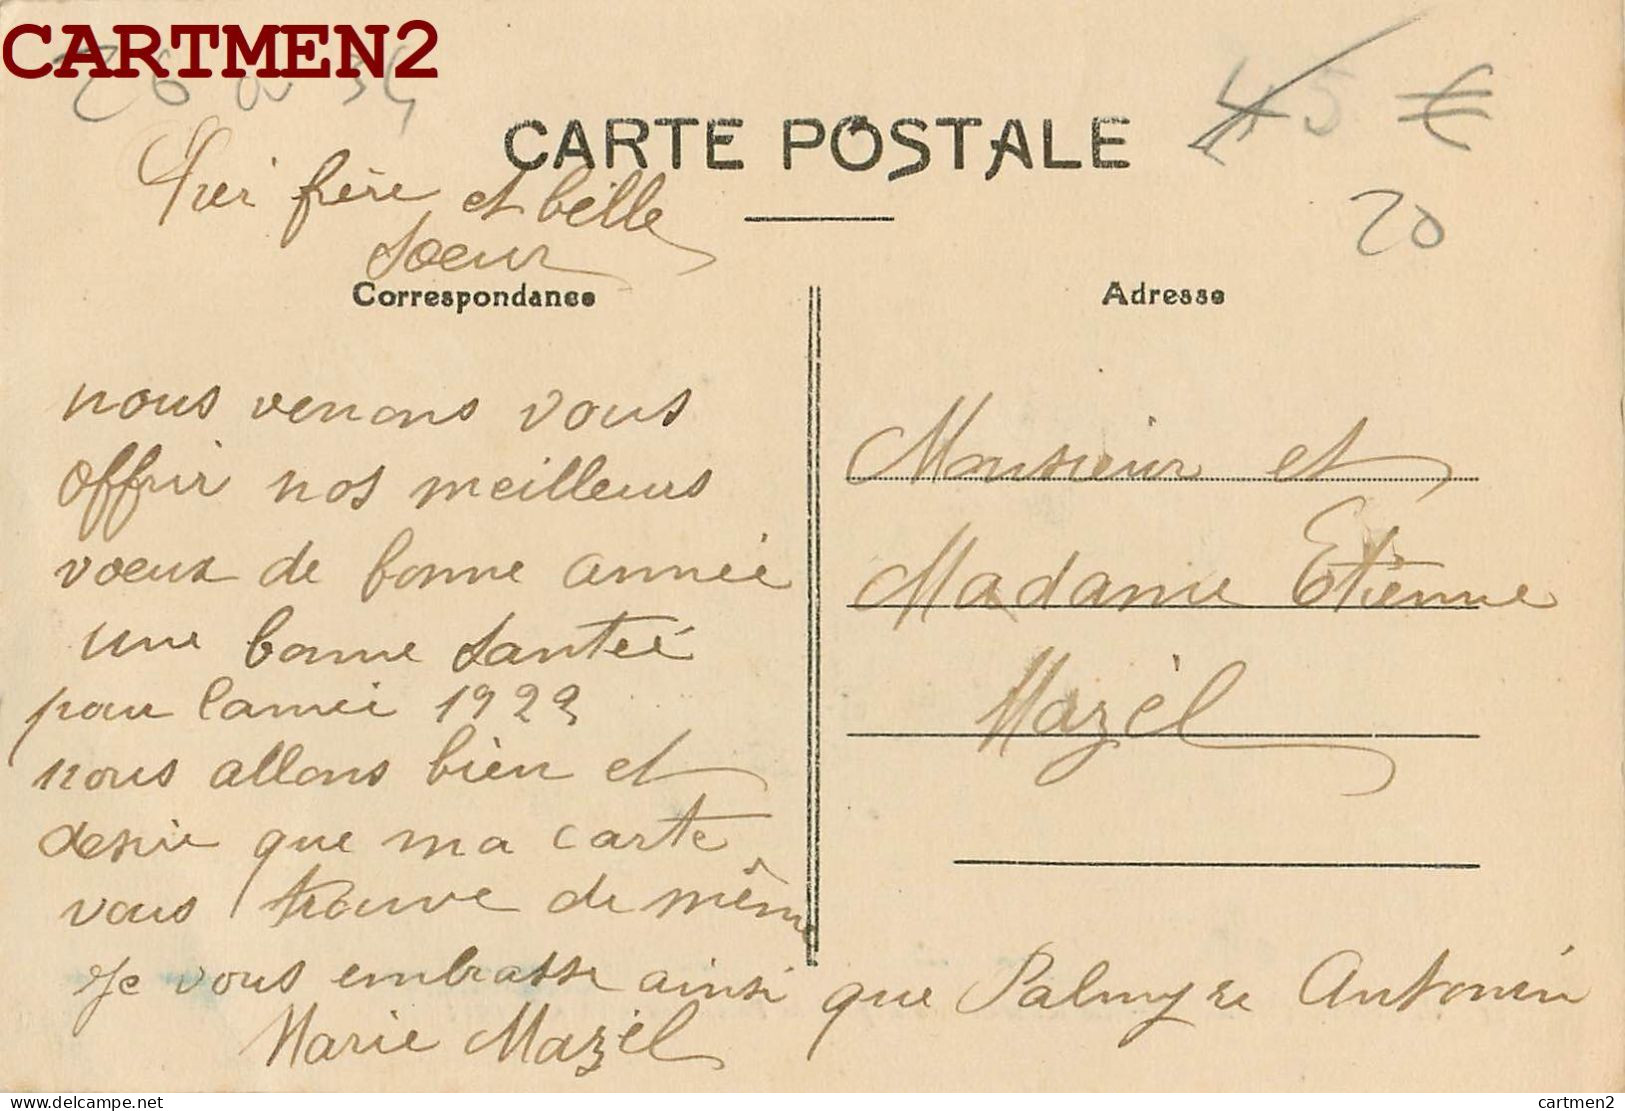 CARTMEN2
CARTE POSTALE
45 €
20
Cher frère et belle
soeur
Correspondance
Adresse
nous venons vous
offrir nos meilleurs
voeux de bonne année
une bonne santeé
pour lanneé 1922
nous allons bien et
desire que ma carte
vous trouve de même
Je vous embrasse ainsi que Palmyre Antonin
Marie Mazèl
Monsieur et
Madame Etienne
Mazèl
www.delcampe.net
cartmen2